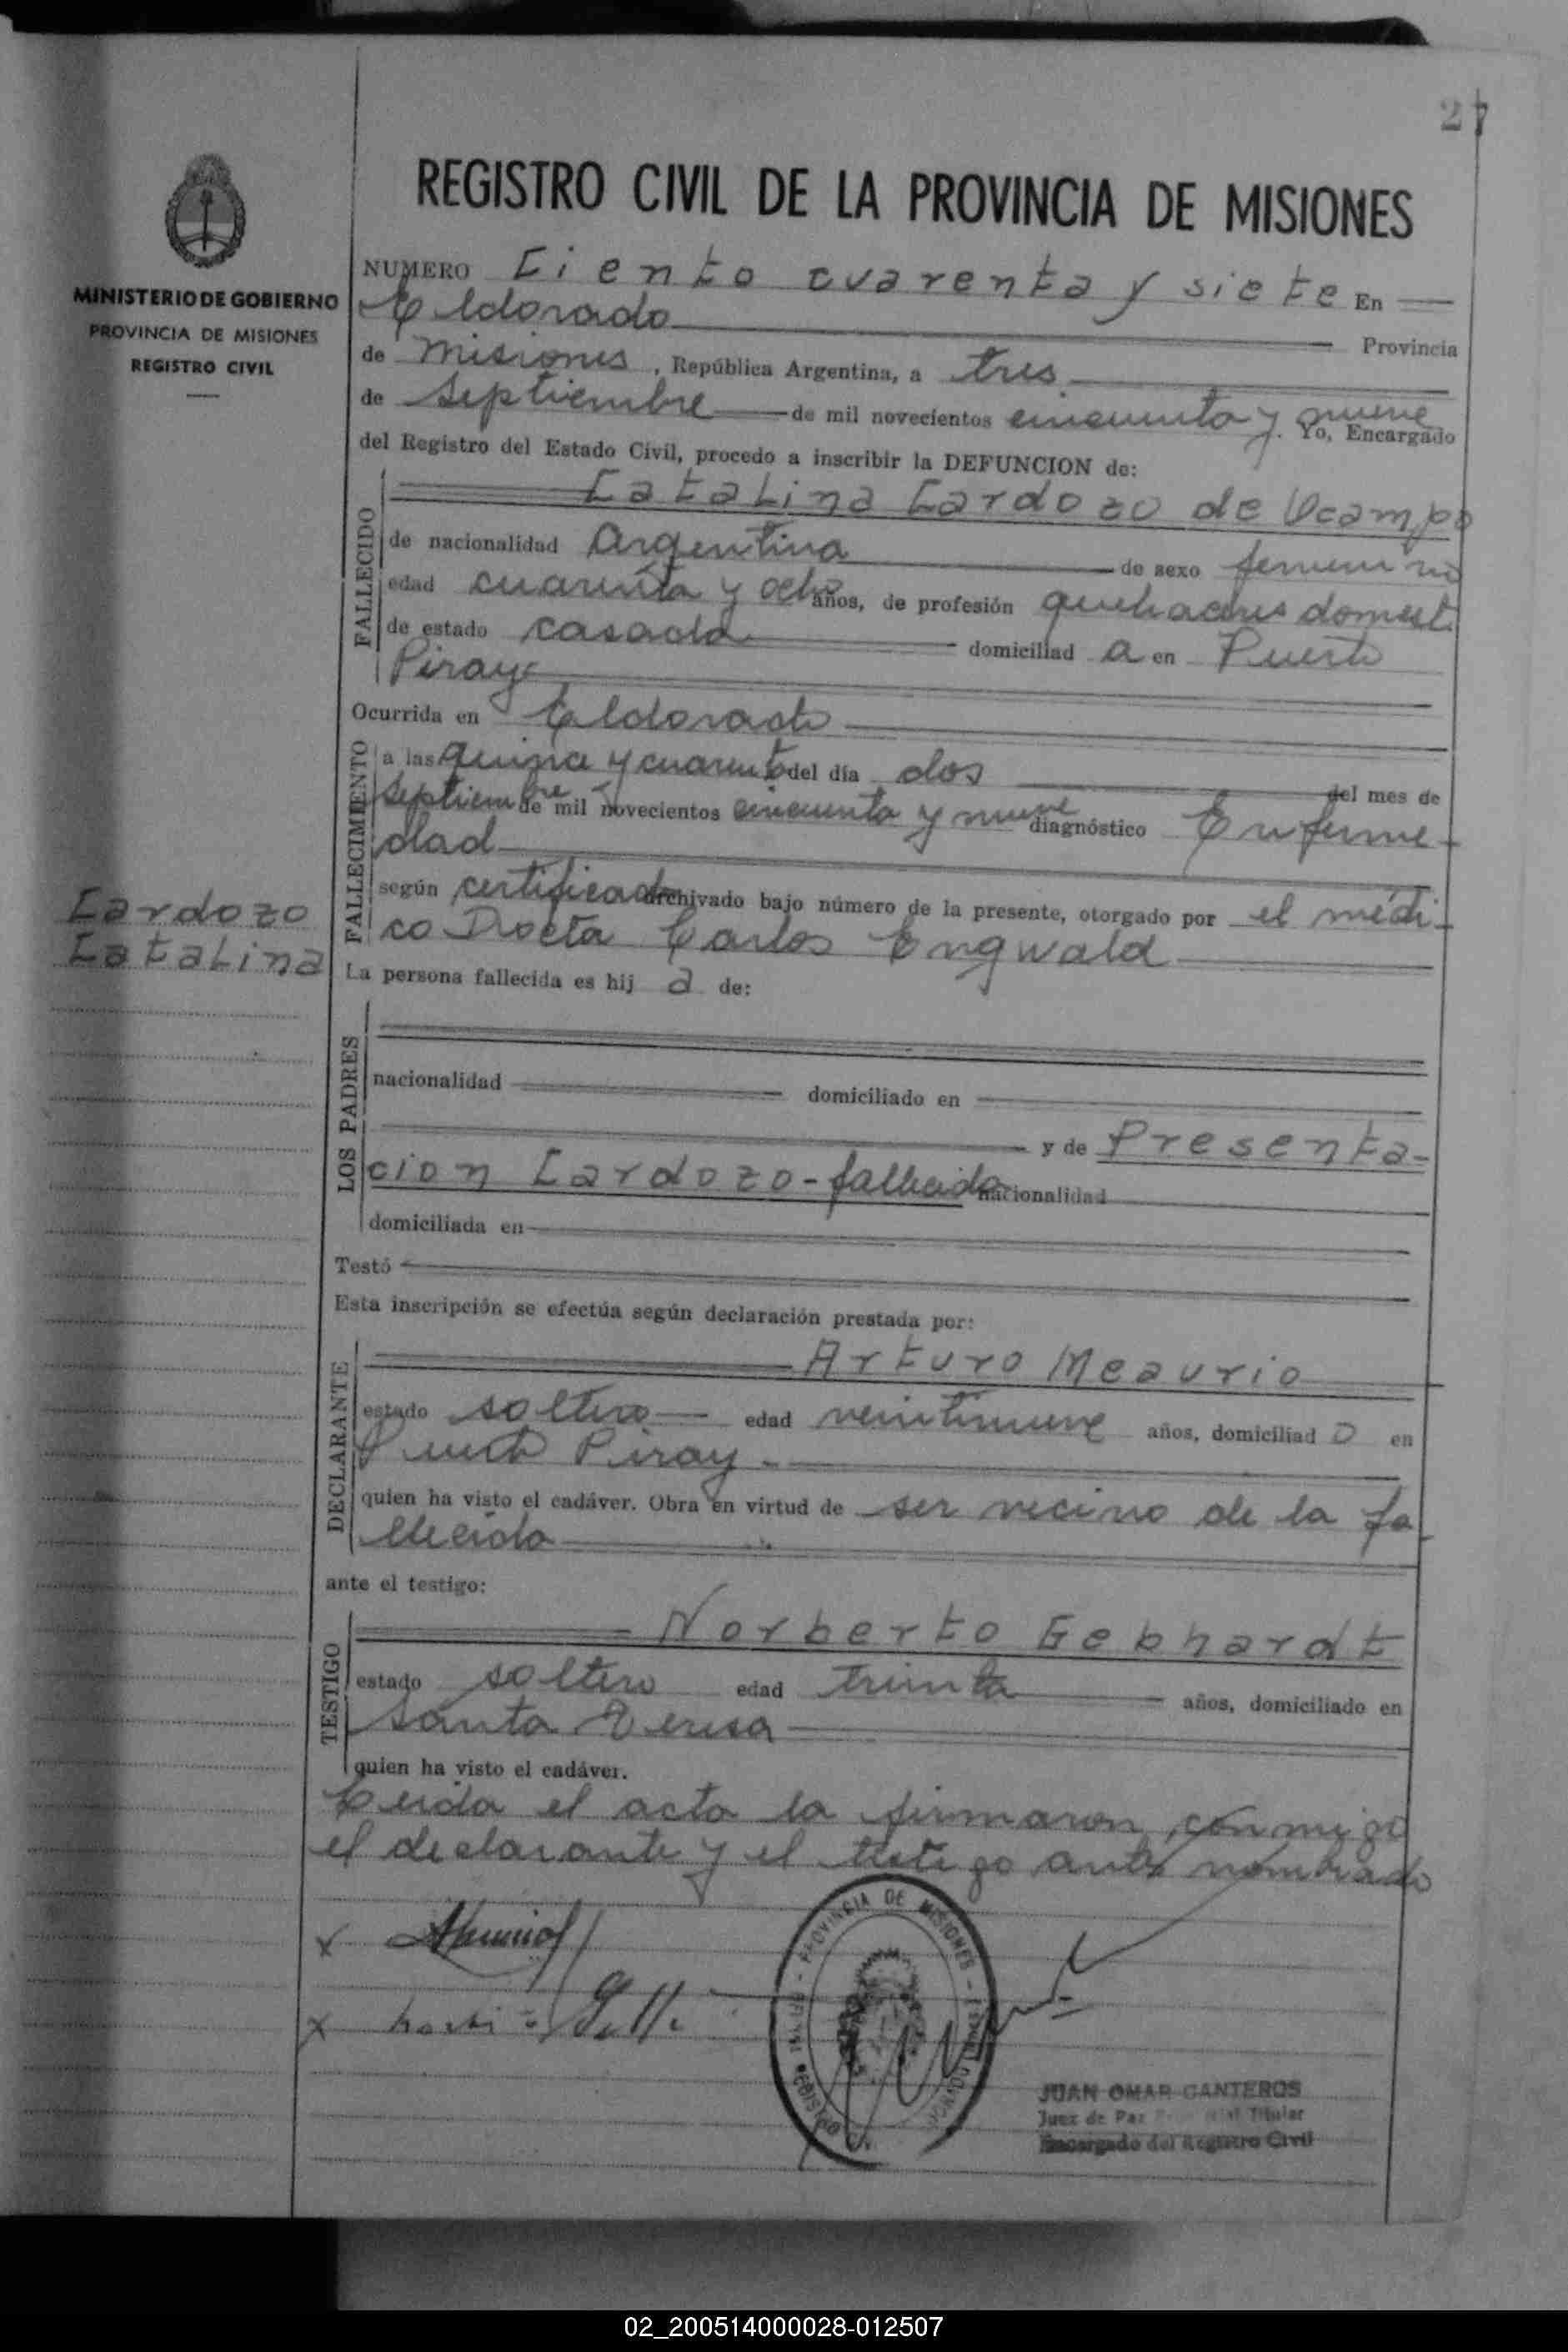 27
REGISTRO CIVIL DE LA PROVINCIA DE MISIONES
MINISTERIO DE GOBIERNO
PROVINCIA DE MISIONES
REGISTRO CIVIL
NUMERO Ciento cuarenta y siete En
Eldorado Provincia
de Misiones, República Argentina, a tres
de septiembre de mil novecientos cincuenta y nueve. Yo, Encargado
del Registro del Estado Civil, procedo a inscribir la DEFUNCION de:
FALLECIDO
Catalina Cardozo de Ocampo
de nacionalidad Argentina de sexo femenino
edad cuarenta y ocho años, de profesión quehaceres domest.
de estado casada domiciliad a en Puerto
Piray
Ocurrida en Eldorado
FALLECIMIENTO
a las quince y cuarenta del día dos del mes de
septiembre de mil novecientos cincuenta y nueve diagnóstico Enferme-
dad
según certificado archivado bajo número de la presente, otorgado por el médi-
co Docta Carlos Engwald
Cardozo
Catalina
La persona fallecida es hij a de:
LOS PADRES
nacionalidad domiciliado en
y de Presenta-
cion Cardozo-fallecida nacionalidad
domiciliada en
Testó
Esta inscripción se efectúa según declaración prestada por:
DECLARANTE
Arturo Meaurio
estado soltero edad veintinueve años, domiciliad o en
Puerto Piray.
quien ha visto el cadáver. Obra en virtud de ser vecino de la fa
llecida
ante el testigo:
TESTIGO
Norberto Gebhardt
estado soltero edad treinta años, domiciliado en
Santa Teresa
quien ha visto el cadáver.
Leida el acta la firmaron conmigo
el declarante y el testigo antes nombrado
x
x
PROVINCIA DE MISIONES
JUAN OMAR CANTEROS
Juez de Paz Titular
Encargado del Registro Civil
02_200514000028-012507